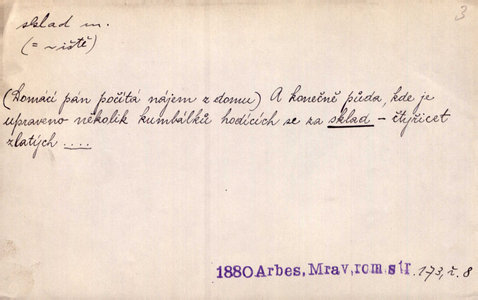 3
sklad m.
(= ~iště)
(Domácí pán počítá nájem z domu) A konečně půda, kde je
upraveno několik kumbálků hodících se za sklad – čtyřicet
zlatých ....
1880 Arbes, Mrav, rom. str. 173, ř. 8